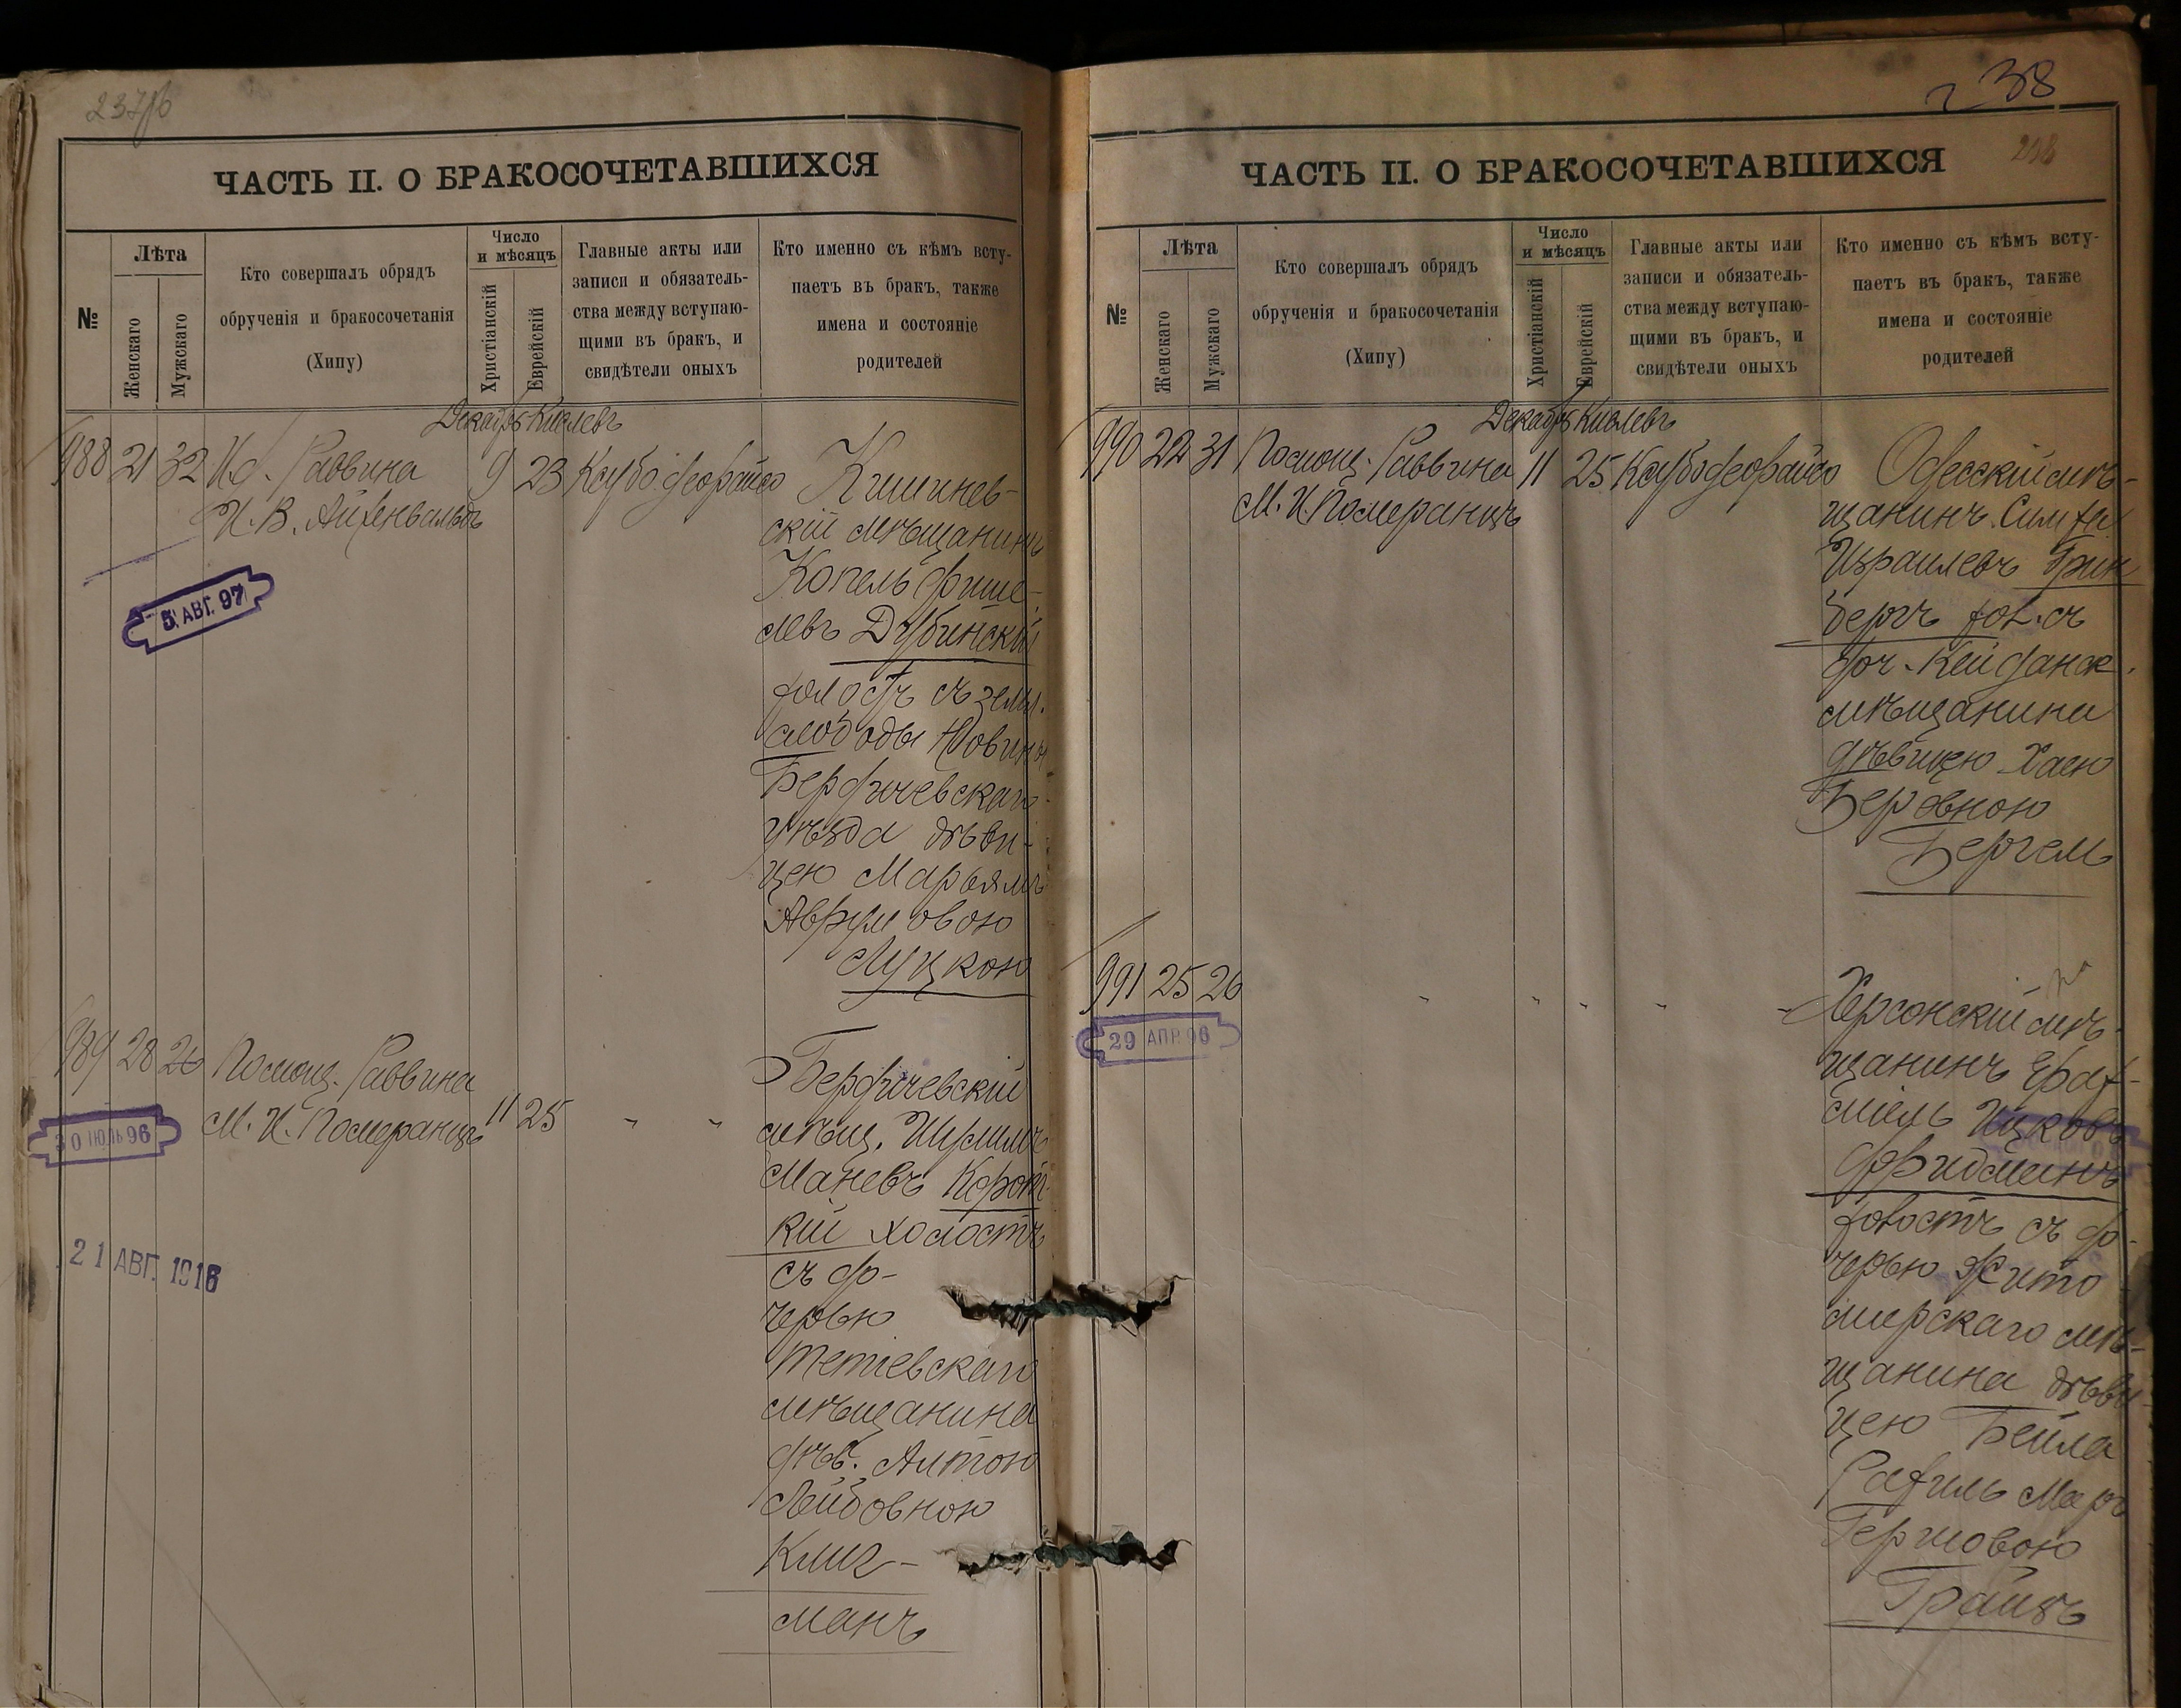 237об
ЧАСТЬ II. О БРАКОСОЧЕТАВШИХСЯ
№
Лѣта
Женскаго
Мужскаго
Кто совершалъ обрядъ
обрученія и бракосочетанія
(Хипу)
Число
и мѣсяцъ
Христіанскій
Еврейскій
Главные акты или
записи и обязатель-
ства между вступаю-
щими въ бракъ, и
свидѣтели оныхъ
Кто именно съ кѣмъ всту-
паетъ въ бракъ, также
имена и состояніе
родителей
Декабрь Кислевъ
988 21 32 И.д. Раввина 9 23
И.В. Айхенвальдъ
5 АВГ. 97
Кишинев-
скій мѣщанинъ
Копель Фише-
левъ Дубинскій
холостъ съ земл.
слободы Новины
Бердичевскаго
уѣзда дѣви-
цею Марьямъ
Аврумовою
Луцкою
989 28 26 Помощ. Раввина
М. И. Померанцъ 11 25 " "
30 ІЮЛЬ 96
21 АВГ. 1916
Бердичевскій
мѣщ.
Маневъ Корот-
кій холостъ
съ до-
черью
Тетіевскаго
мѣщанина
дѣв. Алтою
Лейбовною
Клиг-
манъ
238
238
ЧАСТЬ II. О БРАКОСОЧЕТАВШИХСЯ
№
Лѣта
Женскаго
Мужскаго
Кто совершалъ обрядъ
обрученія и бракосочетанія
(Хипу)
Число
и мѣсяцъ
Христіанскій
Еврейскій
Главные акты или
записи и обязатель-
ства между вступаю-
щими въ бракъ, и
свидѣтели оныхъ
Кто именно съ кѣмъ всту-
паетъ въ бракъ, также
имена и состояніе
родителей
Декабрь Кислевъ
990 22 31 Помощ. Раввина 11 25
М. И. Померанцъ
Одесскій мѣ-
щанинъ Симха
Израилевъ Грин
бергъ хол. съ
доч. Кейданск.
мѣщанина
дѣвицею Хаею
Беровною
Бергель
991 25 26 " " " "
29 АПР. 96
Херсонскій мѣ-
щанинъ Ерах-
міель Ицковъ
Фридманъ
холостъ съ до-
черью Жито
мирскаго мѣ-
щанина дѣви
цею Бейла
Рахиль
Гершовою